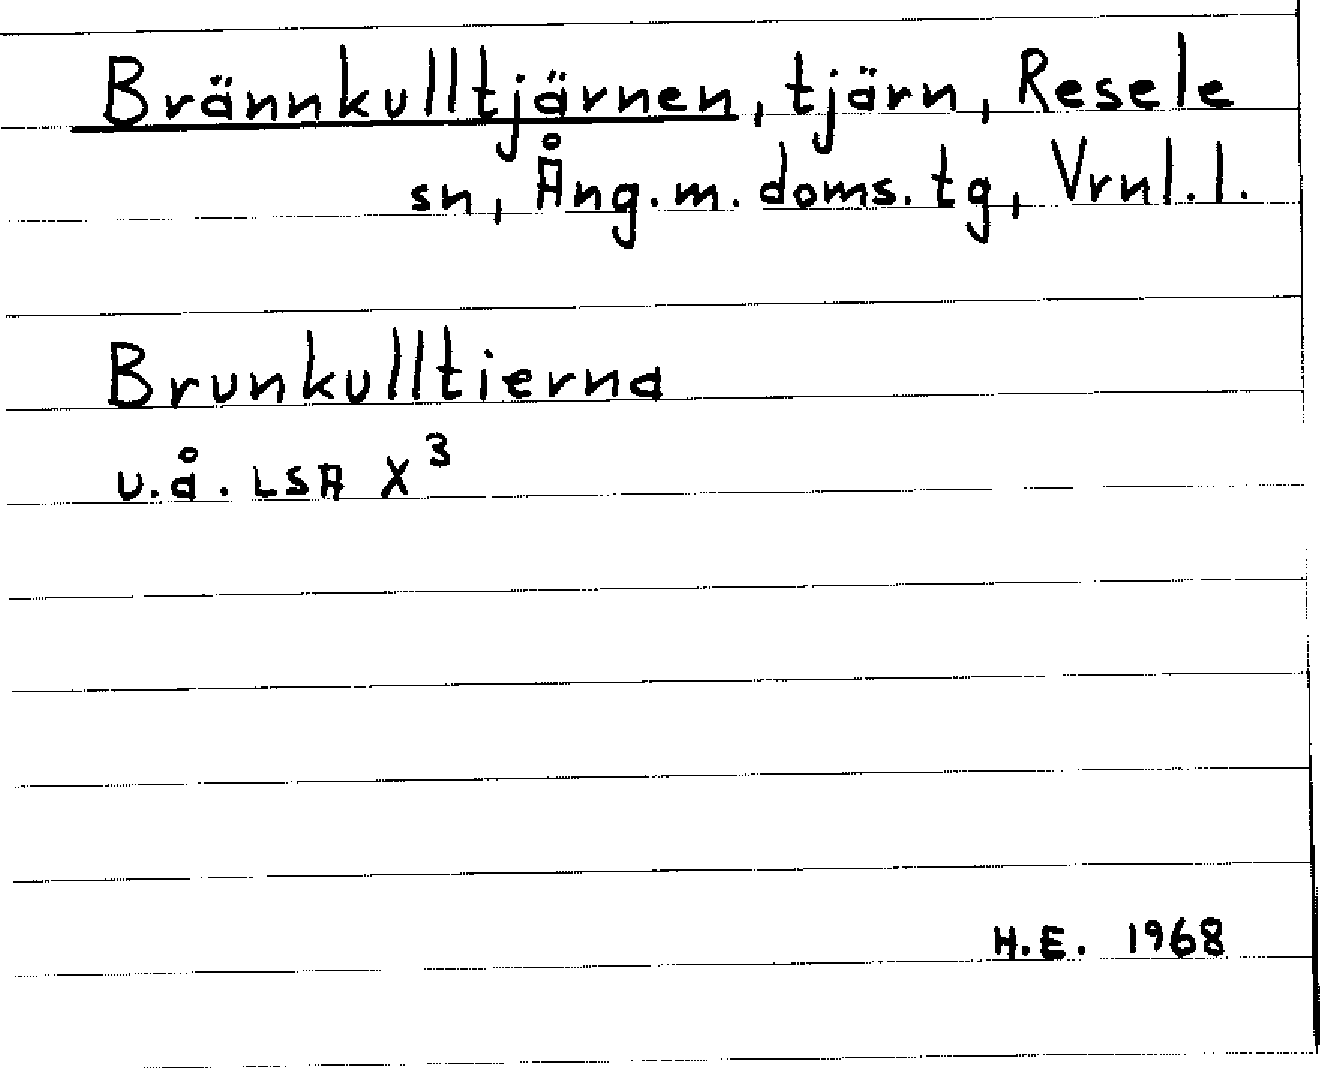 Brännkulltjärnen, tjärn, Resele
sn, Ång. m. doms. tg, Vrnl. l.
Brunkulltierna
u.å. LSA X³
H.E. 1968